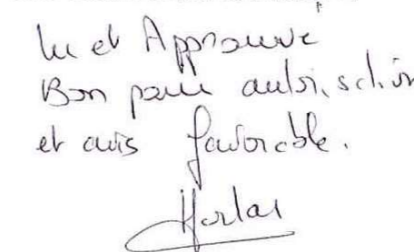 lu et Approuvé
Bon pour autorisation
et avis favorable.